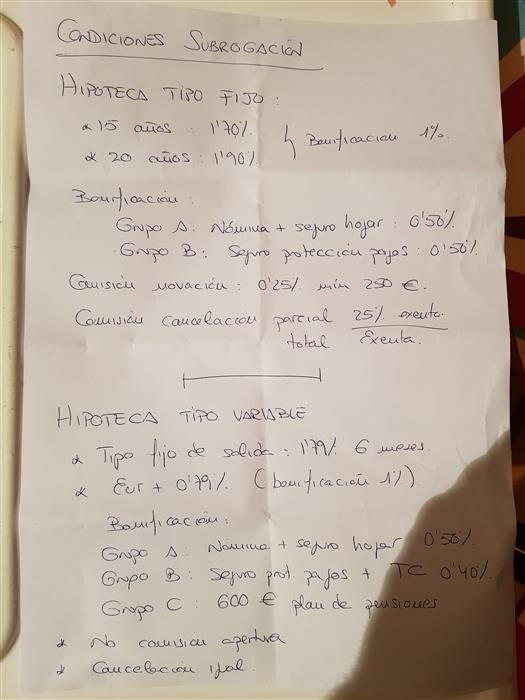 CONDICIONES SUBROGACIÓN
HIPOTECA TIPO FIJO:
* 15 años: 1'70%.
* 20 años: 1'90%. } Bonificación 1%.
Bonificación:
Grupo A: Nómina + seguro hogar: 0'50%
Grupo B: Seguro protección pagos: 0'50%
Comisión novación: 0'25% min 250 €.
Comisión cancelación parcial 25% exenta.
total Exenta.
HIPOTECA TIPO VARIABLE
* Tipo fijo de salida: 1'79% 6 meses.
* Eur + 0'79%. (bonificación 1%).
Bonificación:
Grupo A: Nómina + seguro hogar 0'50%.
Grupo B: Seguro prot. pagos + TC 0'40%.
Grupo C: 600 € plan de pensiones
* No comisión apertura
* Cancelación igual.